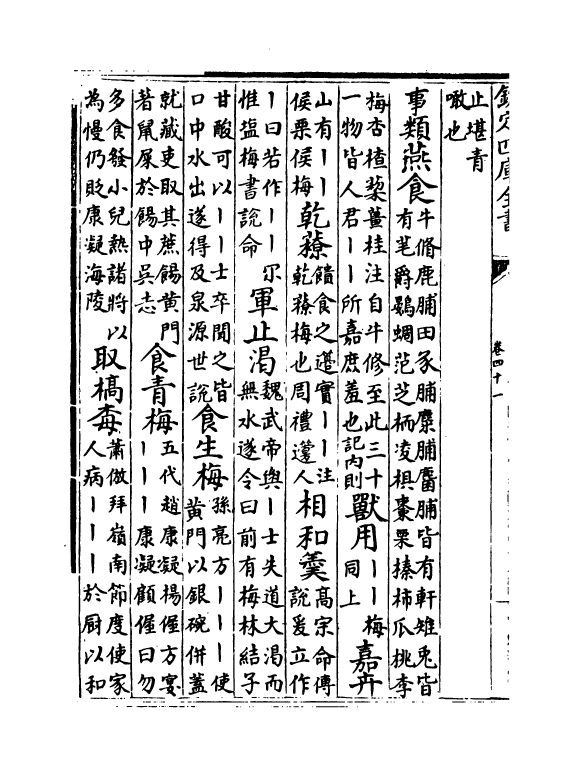 欽定四庫全書
卷四十一
止堪青
噉也
事類燕食牛脩鹿脯田豕脯麋脯麕脯皆有軒雉兎皆
有芼爵鷃蜩范芝栭凌椇棗栗榛柿瓜桃李
梅杏楂棃薑桂注自牛修至此三十
一物皆人君丨丨所嘉庶羞也記内則獸用丨丨梅
同上嘉卉
山有丨丨
侯栗侯梅乾䕩饋食之籩實丨丨注
乾䕩梅也周禮籩人相和羹高宗命傅
說爰立作
丨曰若作丨丨
惟塩梅書說命尔軍止渴魏武帝與丨士失道大渴而
無水遂令曰前有梅林結子
甘酸可以丨丨士卒聞之皆
口中水出遂得及泉源世說食生梅孫亮方丨丨丨使
黄門以銀碗併蓋
就藏吏取其蔗餳黄門
著鼠屎於餳中吳志食青梅五代趙康凝楊偓方宴
丨丨丨康凝顧偓曰勿
多食發小兒熱諸將以
為慢仍貶康凝海陵取槁毒蕭倣拜嶺南節度使家
人病丨丨丨於厨以和